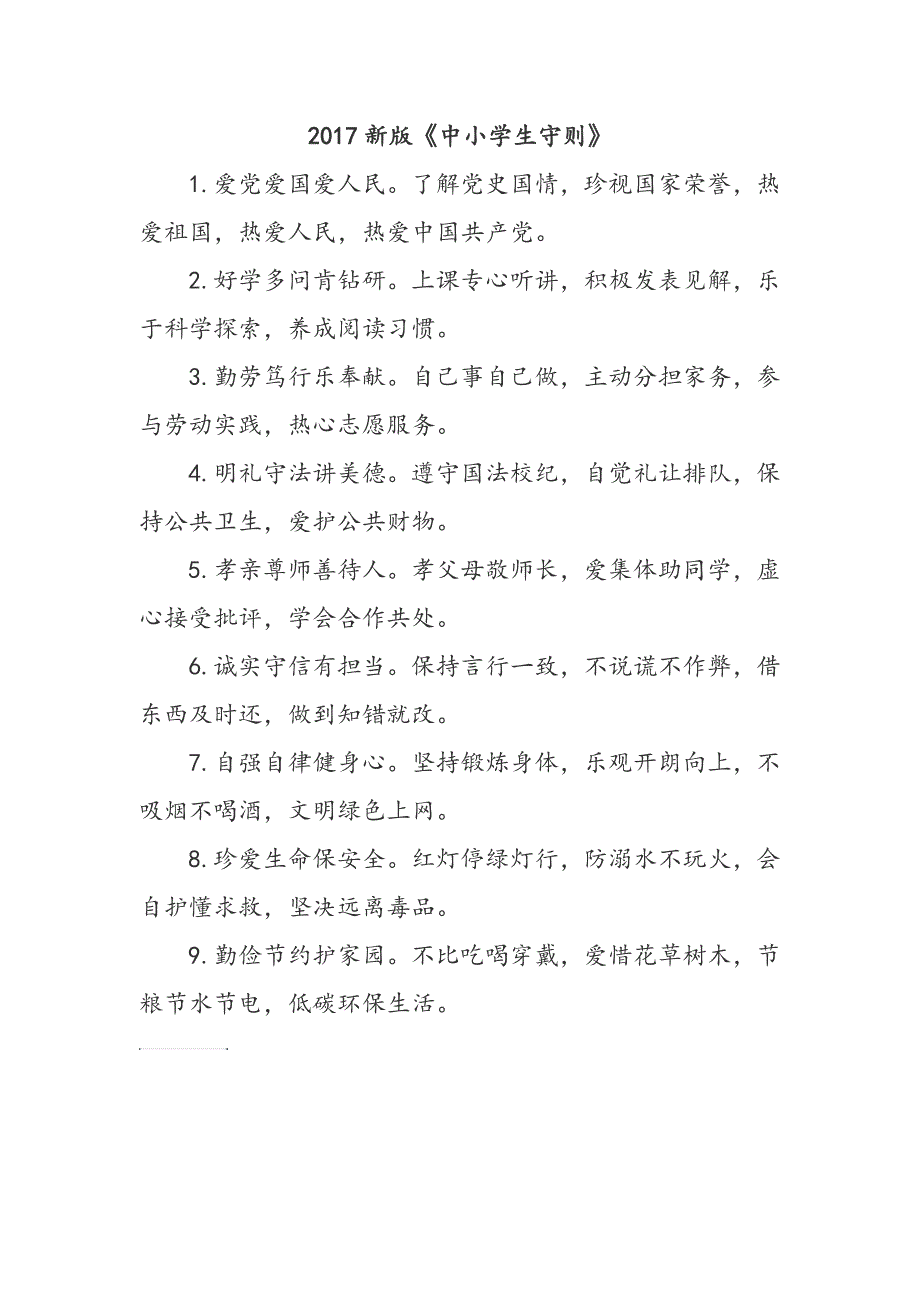 2017新版《中小学生守则》
1.爱党爱国爱人民。了解党史国情，珍视国家荣誉，热
爱祖国，热爱人民，热爱中国共产党。
2.好学多问肯钻研。上课专心听讲，积极发表见解，乐
于科学探索，养成阅读习惯。
3.勤劳笃行乐奉献。自己事自己做，主动分担家务，参
与劳动实践，热心志愿服务。
4.明礼守法讲美德。遵守国法校纪，自觉礼让排队，保
持公共卫生，爱护公共财物。
5.孝亲尊师善待人。孝父母敬师长，爱集体助同学，虚
心接受批评，学会合作共处。
6.诚实守信有担当。保持言行一致，不说谎不作弊，借
东西及时还，做到知错就改。
7.自强自律健身心。坚持锻炼身体，乐观开朗向上，不
吸烟不喝酒，文明绿色上网。
8.珍爱生命保安全。红灯停绿灯行，防溺水不玩火，会
自护懂求救，坚决远离毒品。
9.勤俭节约护家园。不比吃喝穿戴，爱惜花草树木，节
粮节水节电，低碳环保生活。